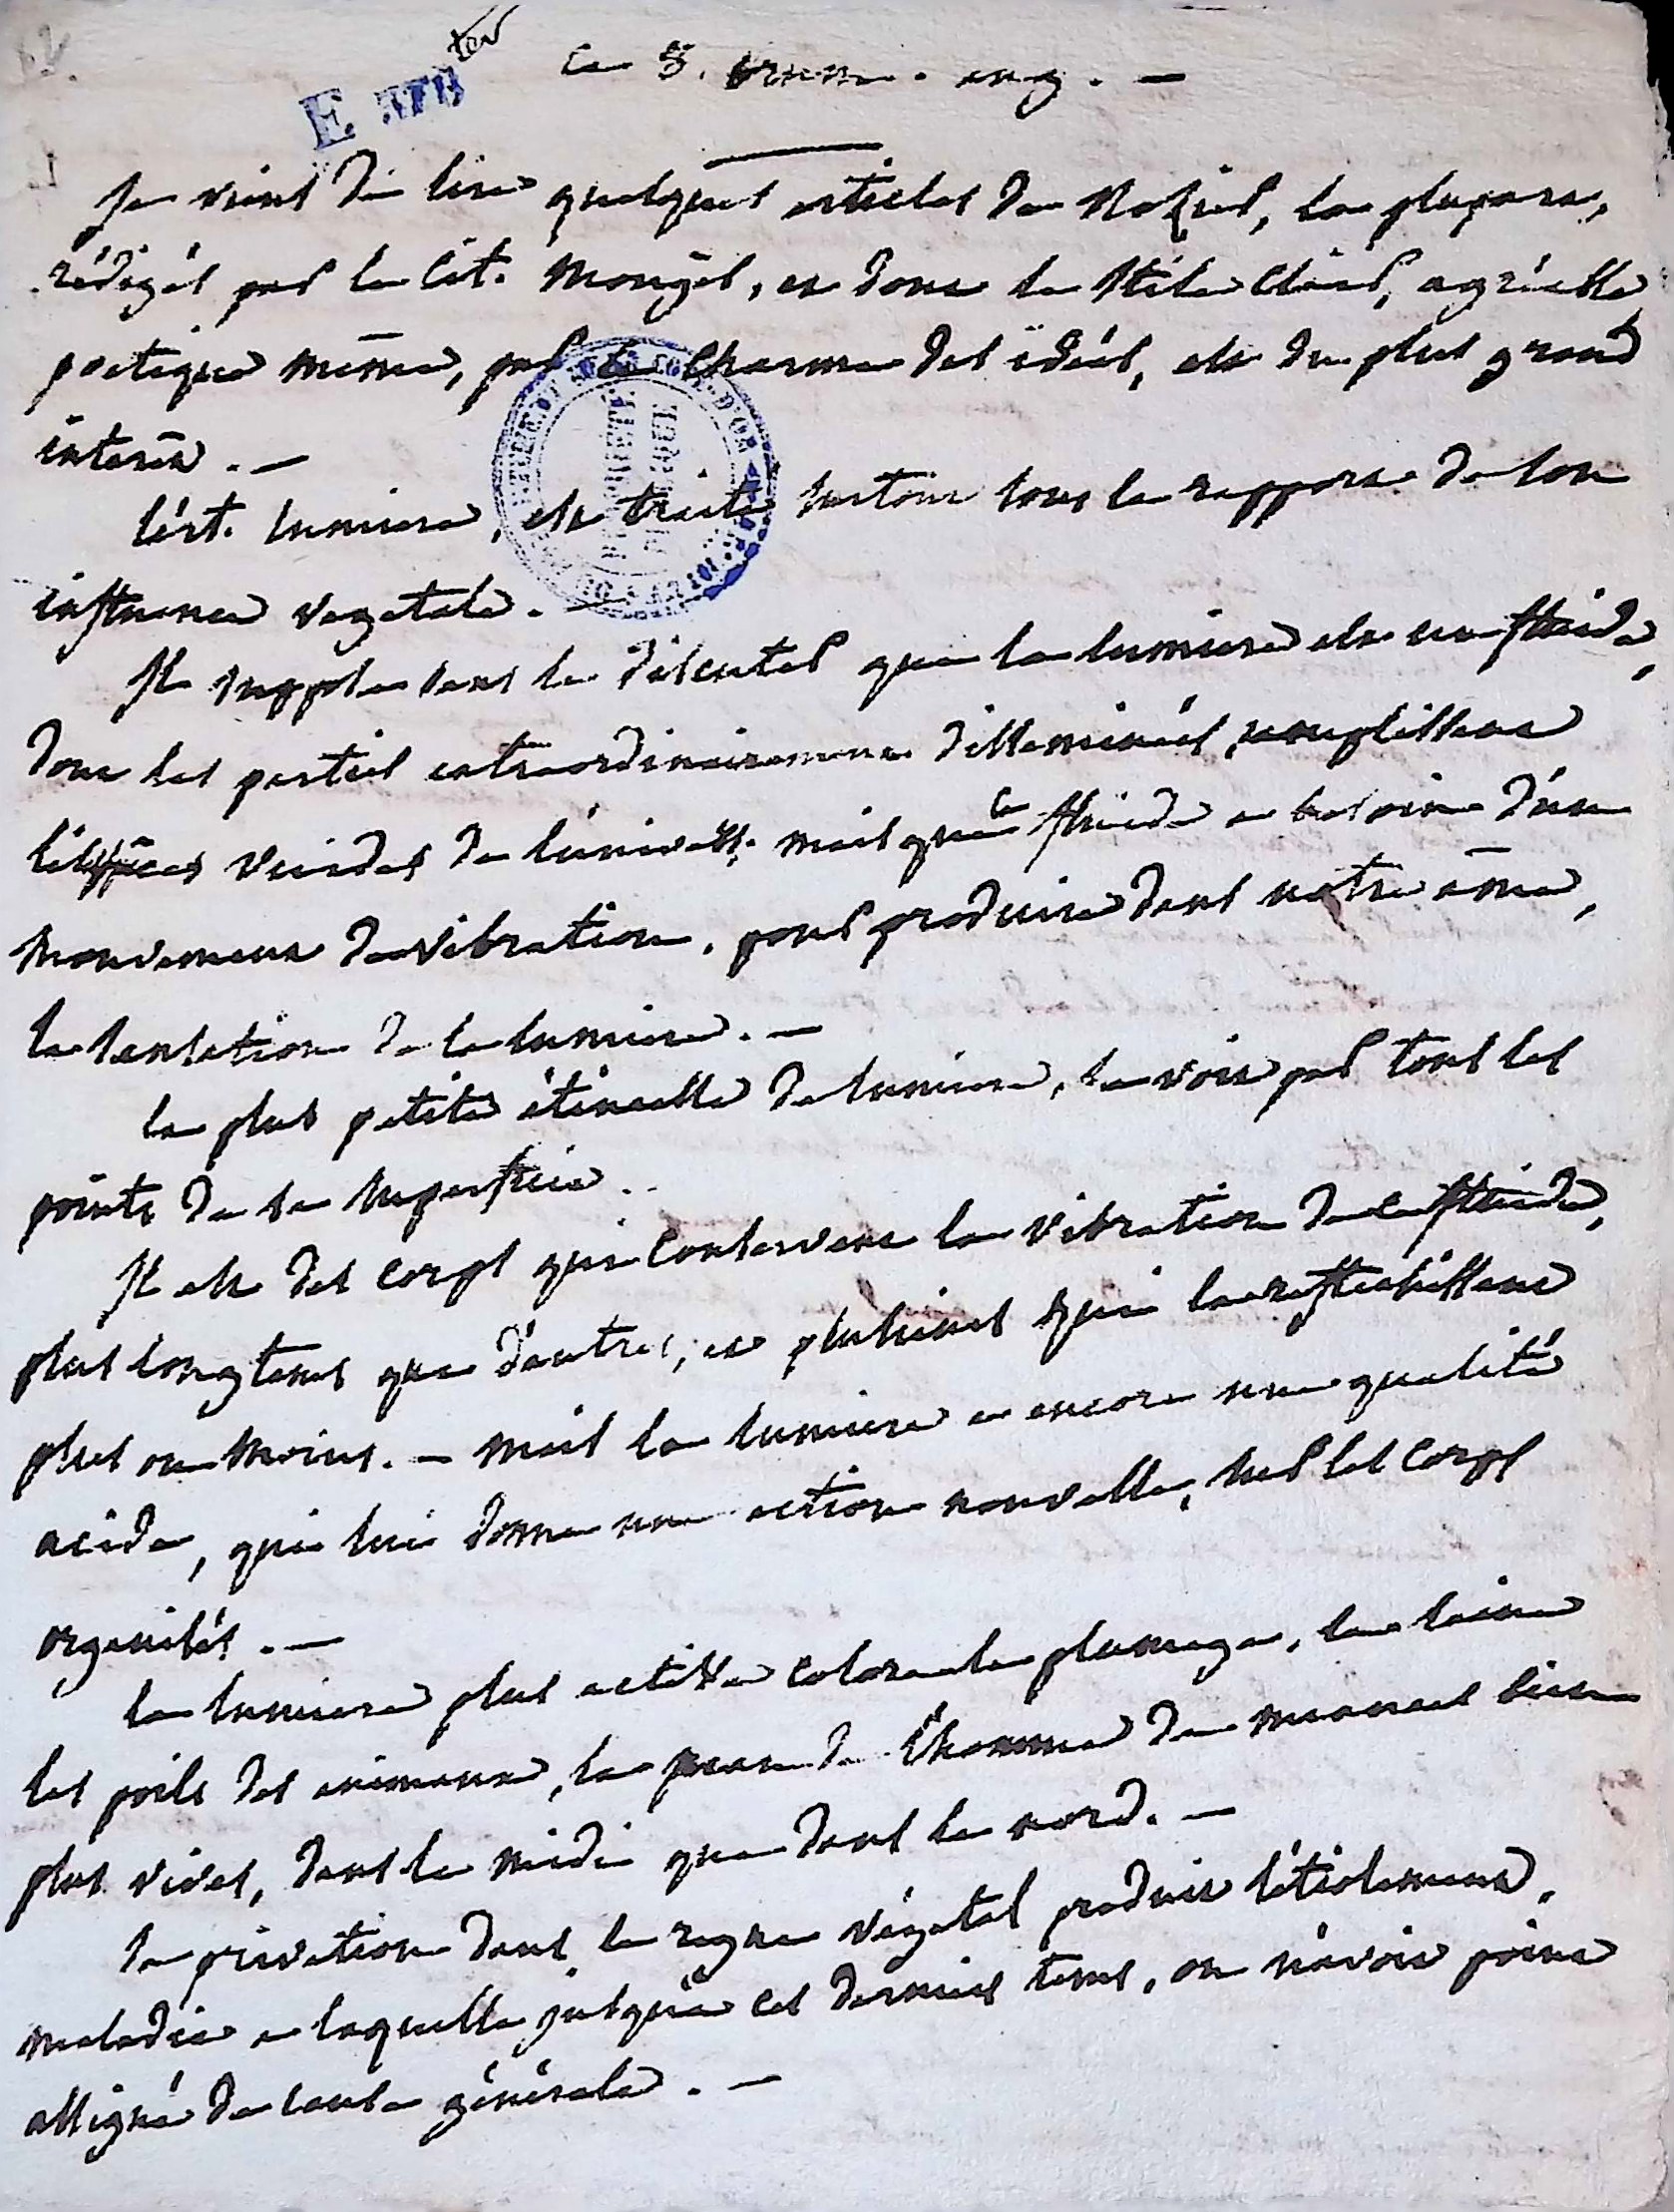 E 378
ter
Ce 5. brum. an 9. —
Je viens de lire quelques articles de Rozier, la plupart,
rédigés par le Cit. Mongès, et dont le stile clair, agréable
poetique même, par le charme des idées, est du plus grand
interêt. —
L'art. lumiere, est traité surtout sous le rapport de son
influence vegetale. —
Il suppose sans le discuter que la lumiere est un fluide,
dont les parties extraordinairement disséminées, remplissent
les espaces vuides de l'univers; mais que ce fluide a besoin d'un
mouvement de vibration, pour produire dans notre âme,
la sensation de la lumiere. —
la plus petite étincelle de lumiere, se voit par tous les
points de sa superficie.
Il est des corps qui conservent la vibration de ce fluide,
plus longtems que d'autres, et plusieurs qui le réfléchissent
plus ou moins. — mais la lumiere a encore une qualité
acide, qui lui donne une action nouvelle, sur les corps
organisés. —
la lumiere plus active colore le plumage, la laine
les poils des animaux, la peau de l'homme de nuances bien
plus vives, dans le midi que dans le nord. —
Sa privation dans le regne végétal produit l'étiolement,
maladie a laquelle jusqu'à ces derniers tems, on n'avoit point
assigné de cause générale. —